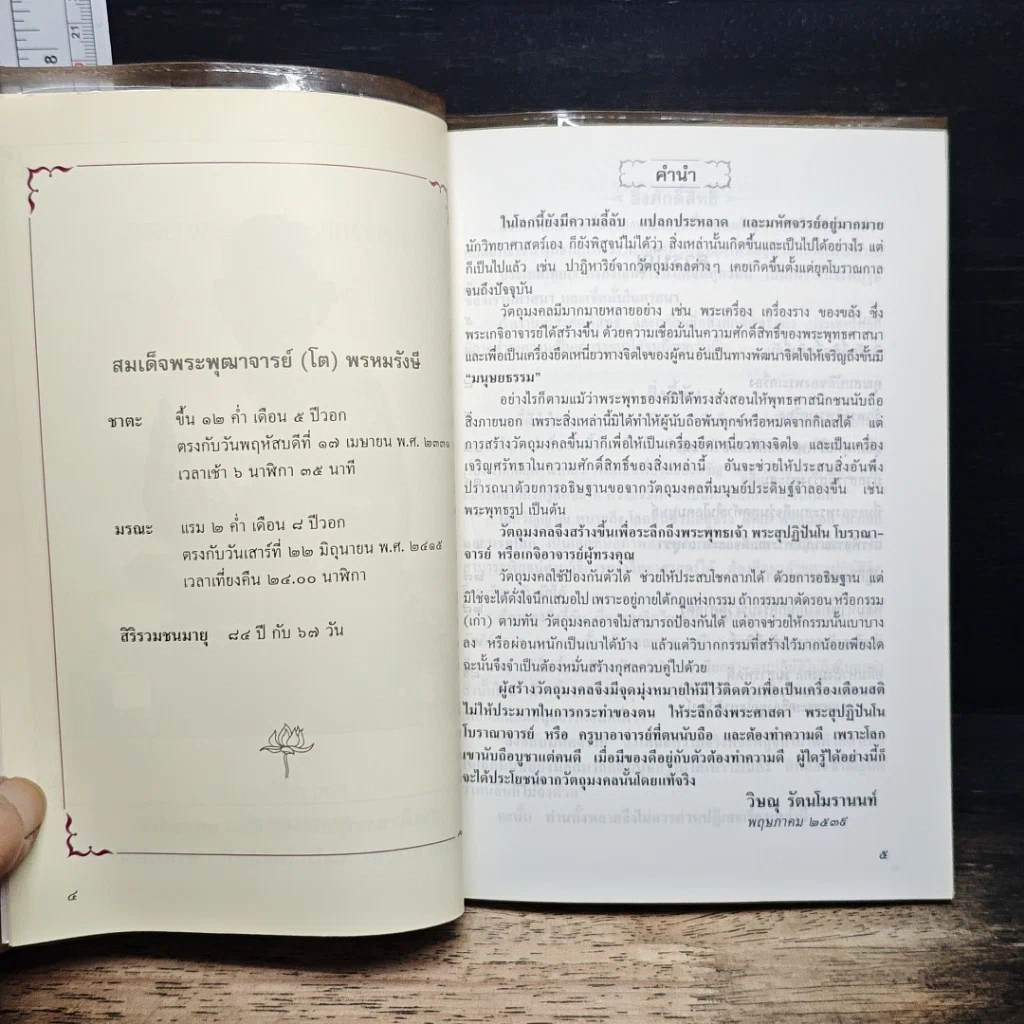 8
21
สมเด็จพระพุฒาจารย์ (โต) พรหมรังษี
ชาตะ ขึ้น ๑๒ ค่ำ เดือน ๕ ปีวอก
ตรงกับวันพฤหัสบดีที่ ๑๗ เมษายน พ.ศ. ๒๓๓๑
เวลาเช้า ๖ นาฬิกา ๓๕ นาที
มรณะ แรม ๒ ค่ำ เดือน ๘ ปีวอก
ตรงกับวันเสาร์ที่ ๒๒ มิถุนายน พ.ศ. ๒๔๑๕
เวลาเที่ยงคืน ๒๔.๐๐ นาฬิกา
สิริรวมชนมายุ ๘๔ ปี กับ ๖๗ วัน
๔
คำนำ
ในโลกนี้ยังมีความลี้ลับ แปลกประหลาด และมหัศจรรย์อยู่มากมาย
นักวิทยาศาสตร์เอง ก็ยังพิสูจน์ไม่ได้ว่า สิ่งเหล่านั้นเกิดขึ้นและเป็นไปได้อย่างไร แต่
ก็เป็นไปแล้ว เช่น ปาฏิหาริย์จากวัตถุมงคลต่างๆ เคยเกิดขึ้นตั้งแต่ยุคโบราณกาล
จนถึงปัจจุบัน
วัตถุมงคลมีมากมายหลายอย่าง เช่น พระเครื่อง เครื่องราง ของขลัง ซึ่ง
พระเกจิอาจารย์ได้สร้างขึ้น ด้วยความเชื่อมั่นในความศักดิ์สิทธิ์ของพระพุทธศาสนา
และเพื่อเป็นเครื่องยึดเหนี่ยวทางจิตใจของผู้คน อันเป็นทางพัฒนาจิตใจให้เจริญถึงขั้นมี
“มนุษยธรรม”
อย่างไรก็ตามแม้ว่าพระพุทธองค์มิได้ทรงสั่งสอนให้พุทธศาสนิกชนนับถือ
สิ่งภายนอก เพราะสิ่งเหล่านี้มิได้ทำให้ผู้นับถือพ้นทุกข์หรือหมดจากกิเลสได้ แต่
การสร้างวัตถุมงคลขึ้นมาก็เพื่อให้เป็นเครื่องยึดเหนี่ยวทางจิตใจ และเป็นเครื่อง
เจริญศรัทธาในความศักดิ์สิทธิ์ของสิ่งเหล่านี้ อันจะช่วยให้ประสบสิ่งอันพึง
ปรารถนาด้วยการอธิษฐานขอจากวัตถุมงคลที่มนุษย์ประดิษฐ์จำลองขึ้น เช่น
พระพุทธรูป เป็นต้น
วัตถุมงคลจึงสร้างขึ้นเพื่อระลึกถึงพระพุทธเจ้า พระสุปฏิปันโน โบราณา-
จารย์ หรือเกจิอาจารย์ผู้ทรงคุณ
วัตถุมงคลใช้ป้องกันตัวได้ ช่วยให้ประสบโชคลาภได้ ด้วยการอธิษฐาน แต่
มิใช่จะได้ดั่งใจนึกเสมอไป เพราะอยู่ภายใต้กฎแห่งกรรม ถ้ากรรมมาตัดรอน หรือกรรม
(เก่า) ตามทัน วัตถุมงคลอาจไม่สามารถป้องกันได้ แต่อาจช่วยให้กรรมนั้นเบาบาง
ลง หรือผ่อนหนักเป็นเบาได้บ้าง แล้วแต่วิบากกรรมที่สร้างไว้มากน้อยเพียงใด
ฉะนั้นจึงจำเป็นต้องหมั่นสร้างกุศลควบคู่ไปด้วย
ผู้สร้างวัตถุมงคลจึงมีจุดมุ่งหมายให้มีไว้ติดตัวเพื่อเป็นเครื่องเตือนสติ
ไม่ให้ประมาทในการกระทำของตน ให้ระลึกถึงพระศาสดา พระสุปฏิปันโน
โบราณาจารย์ หรือ ครูบาอาจารย์ที่ตนนับถือ และต้องทำความดี เพราะโลก
เขานับถือบูชาแต่คนดี เมื่อมีของดีอยู่กับตัวต้องทำความดี ผู้ใดรู้ได้อย่างนี้ก็
จะได้ประโยชน์จากวัตถุมงคลนั้นโดยแท้จริง
วิษณุ รัตนโมรานนท์
พฤษภาคม ๒๕๓๕
๕